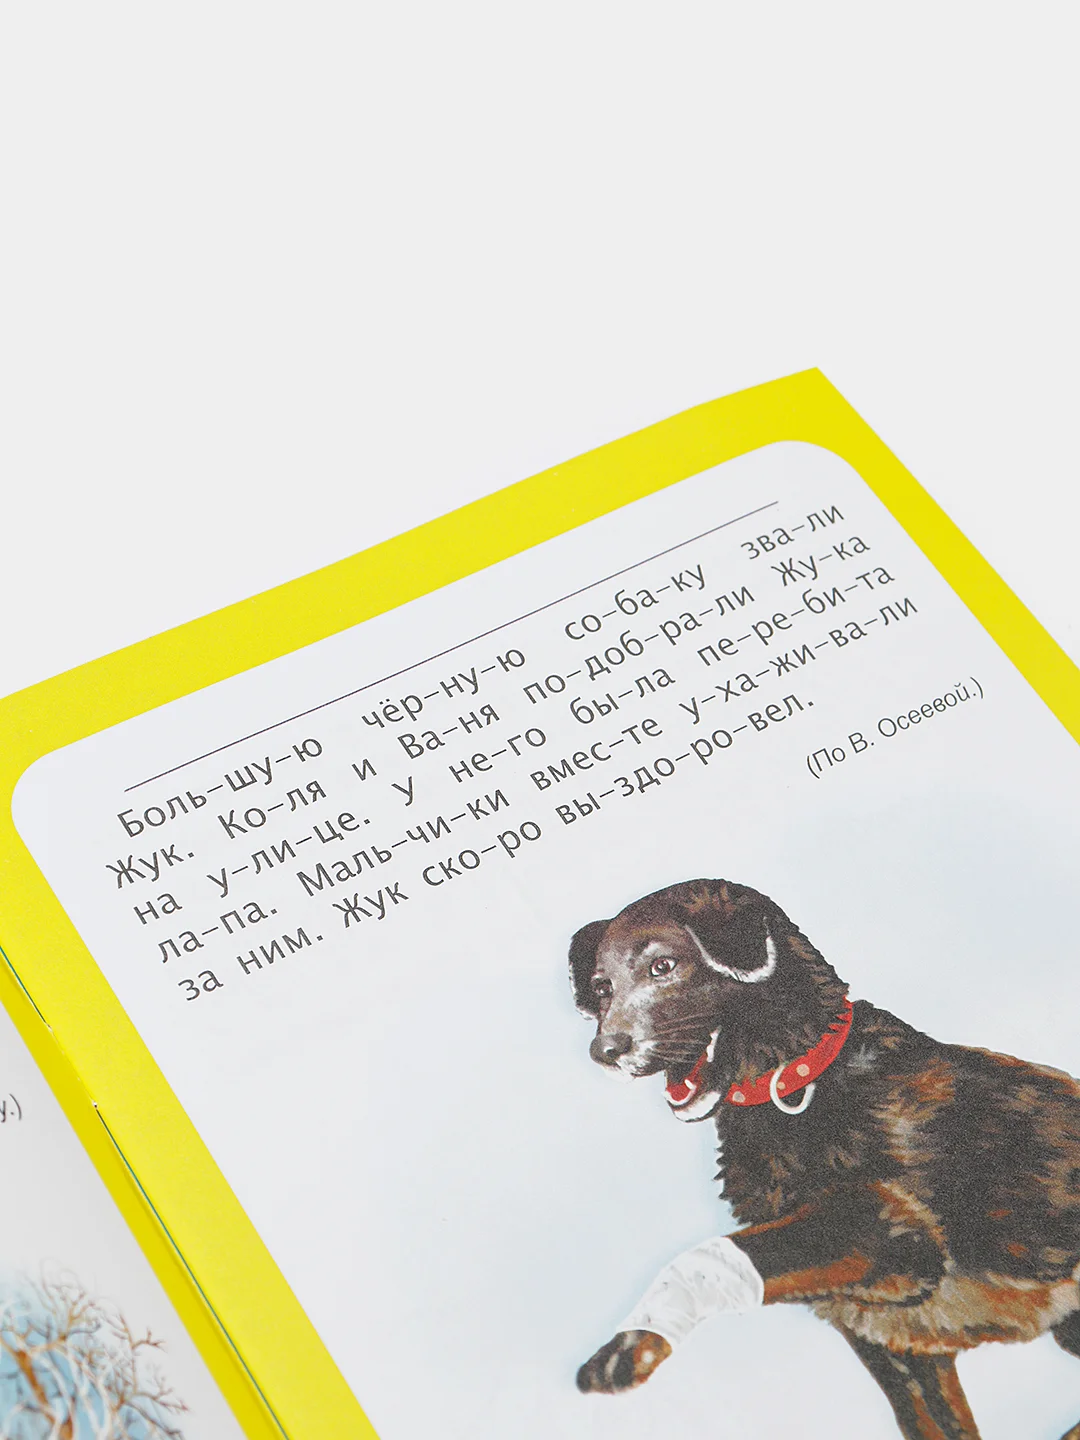 Боль-шу-ю чёр-ну-ю со-ба-ку зва-ли
Жук. Ко-ля и Ва-ня по-доб-ра-ли Жу-ка
на у-ли-це. у не-го бы-ла пе-ре-би-та
ла-па. Маль-чи-ки вмес-те у-ха-жи-ва-ли
за ним. Жук ско-ро вы-здо-ро-вел.
(По В. Осеевой.)
у.)